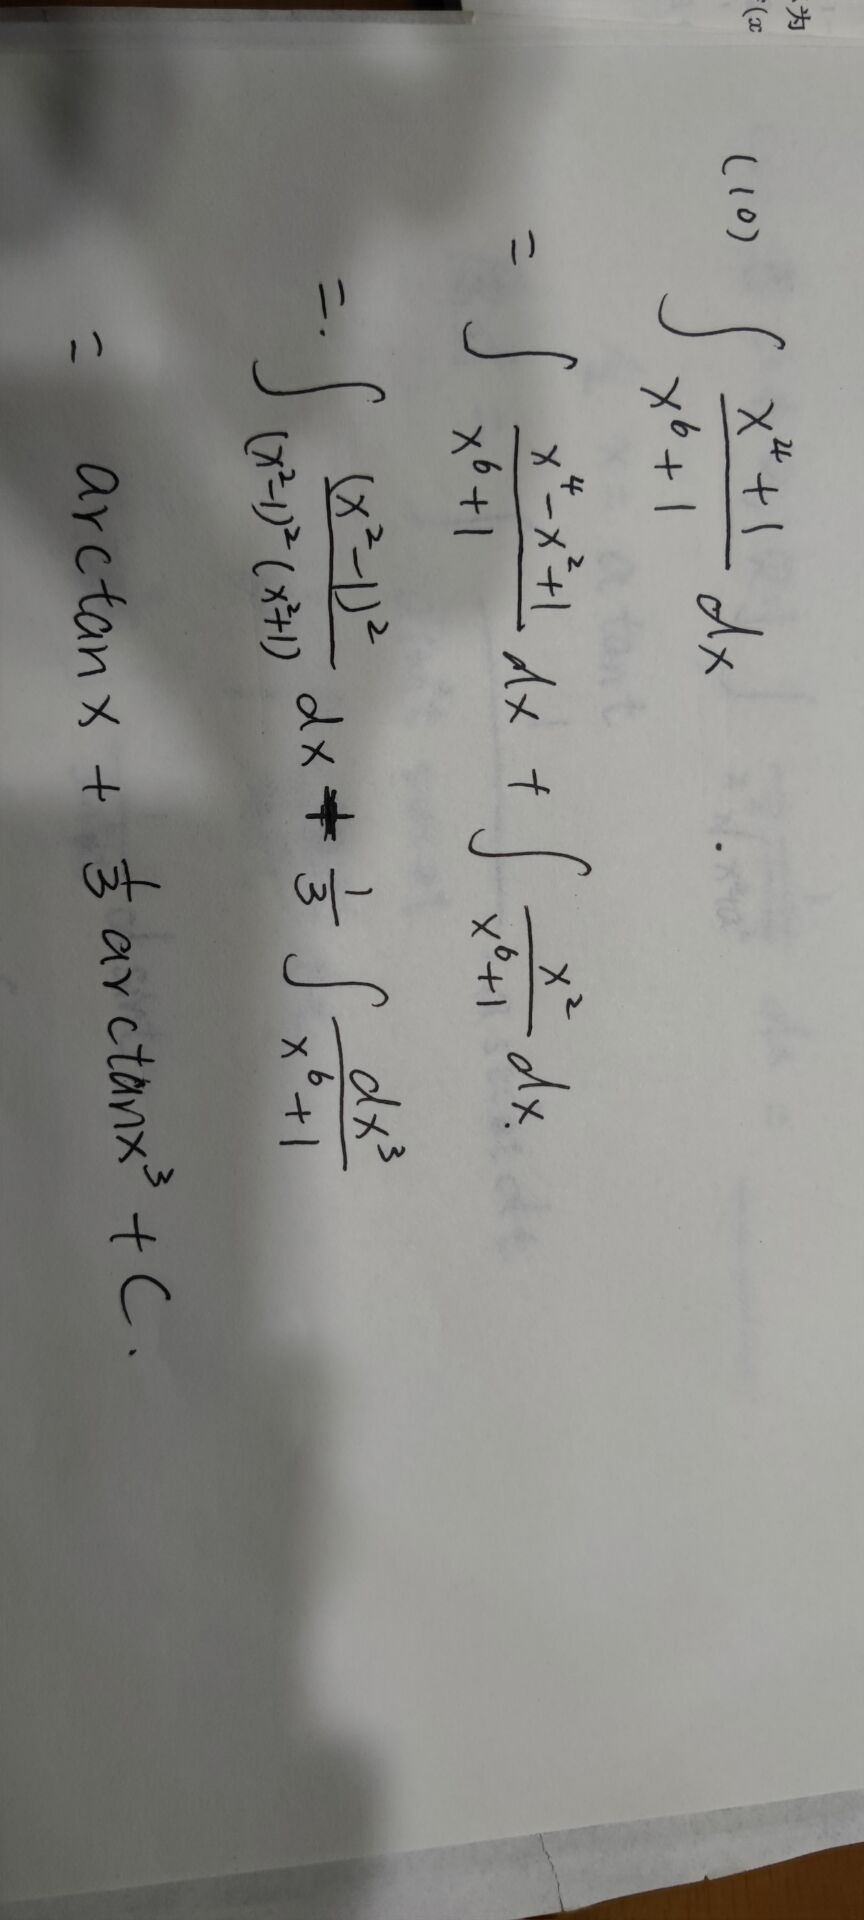 为
(x
(10) ∫ (x⁴+1)/(x⁶+1) dx .
= ∫ (x⁴-x²+1)/(x⁶+1) dx + ∫ x²/(x⁶+1) dx.
=. ∫ (x²-1)²/((x²-1)²(x²+1)) dx + 1/3 ∫ dx³/(x⁶+1)
= arctan x + 1/3 arctanx³ + C.